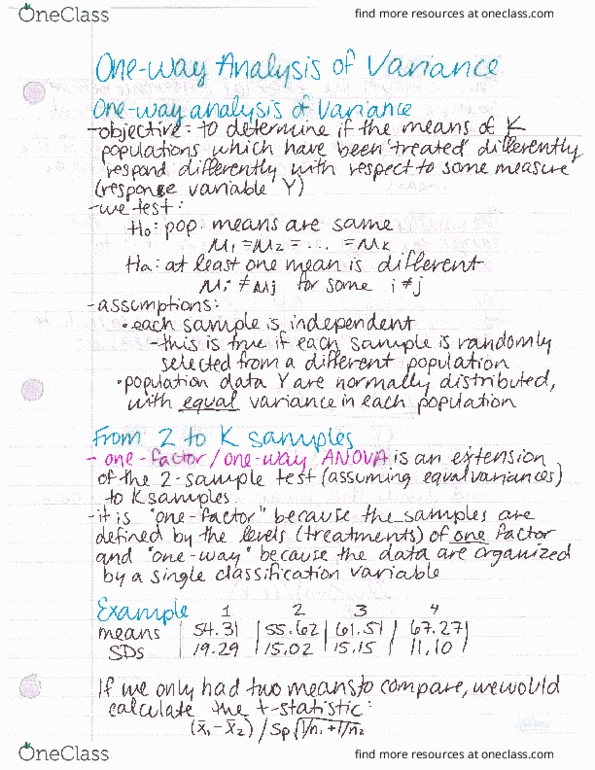 OneClass
find more resources at oneclass.com
One-way Analysis of Variance
One-way analysis of Variance
-objective: to determine if the means of K
populations which have been 'treated' differently
respond differently with respect to some measure
(response variable Y)
-we test:
H₀: pop. means are same
μ₁ = μ₂ = ... = μₖ
Ha: at least one mean is different
μi ≠ μj for some i ≠ j
-assumptions:
•each sample is independent
-this is true if each sample is randomly
selected from a different population
•population data Y are normally distributed,
with equal variance in each population
From 2 to K samples
- one-factor/one-way ANOVA is an extension
of the 2-sample test (assuming equal variances)
to K samples
-it is "one-factor" because the samples are
defined by the levels (treatments) of one factor
and "one-way" because the data are organized
by a single classification variable
Example 1 2 3 4
means | 54.31 | 55.62 | 61.51 | 67.27 |
SDs | 19.29 | 15.02 | 15.15 | 11.10 |
If we only had two means to compare, we would
calculate the t-statistic:
(x̄₁ - x̄₂) / Sp√1/n₁ + 1/n₂
OneClass
find more resources at oneclass.com